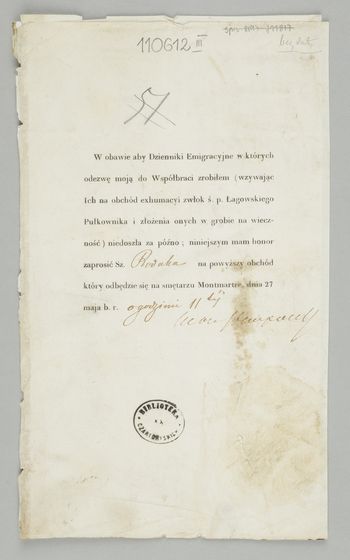 110612 III
bez daty
57
W obawie aby Dzienniki Emigracyjne w których
odezwę moją do Współbraci zrobiłem (wzywając
Ich na obchód exhumacyi zwłok ś. p. Łagowskiego
Pułkownika i złożenia onych w grobie na wiecz-
ność) niedoszła za późno; niniejszym mam honor
zaprosić Sz. Rodaka na powyższy obchód
który odbędzie się na smętarzu Montmartre, dnia 27
maja b. r. o godzinie 11tej
BIBLIOTEKA
XX
CZARTORYSKICH